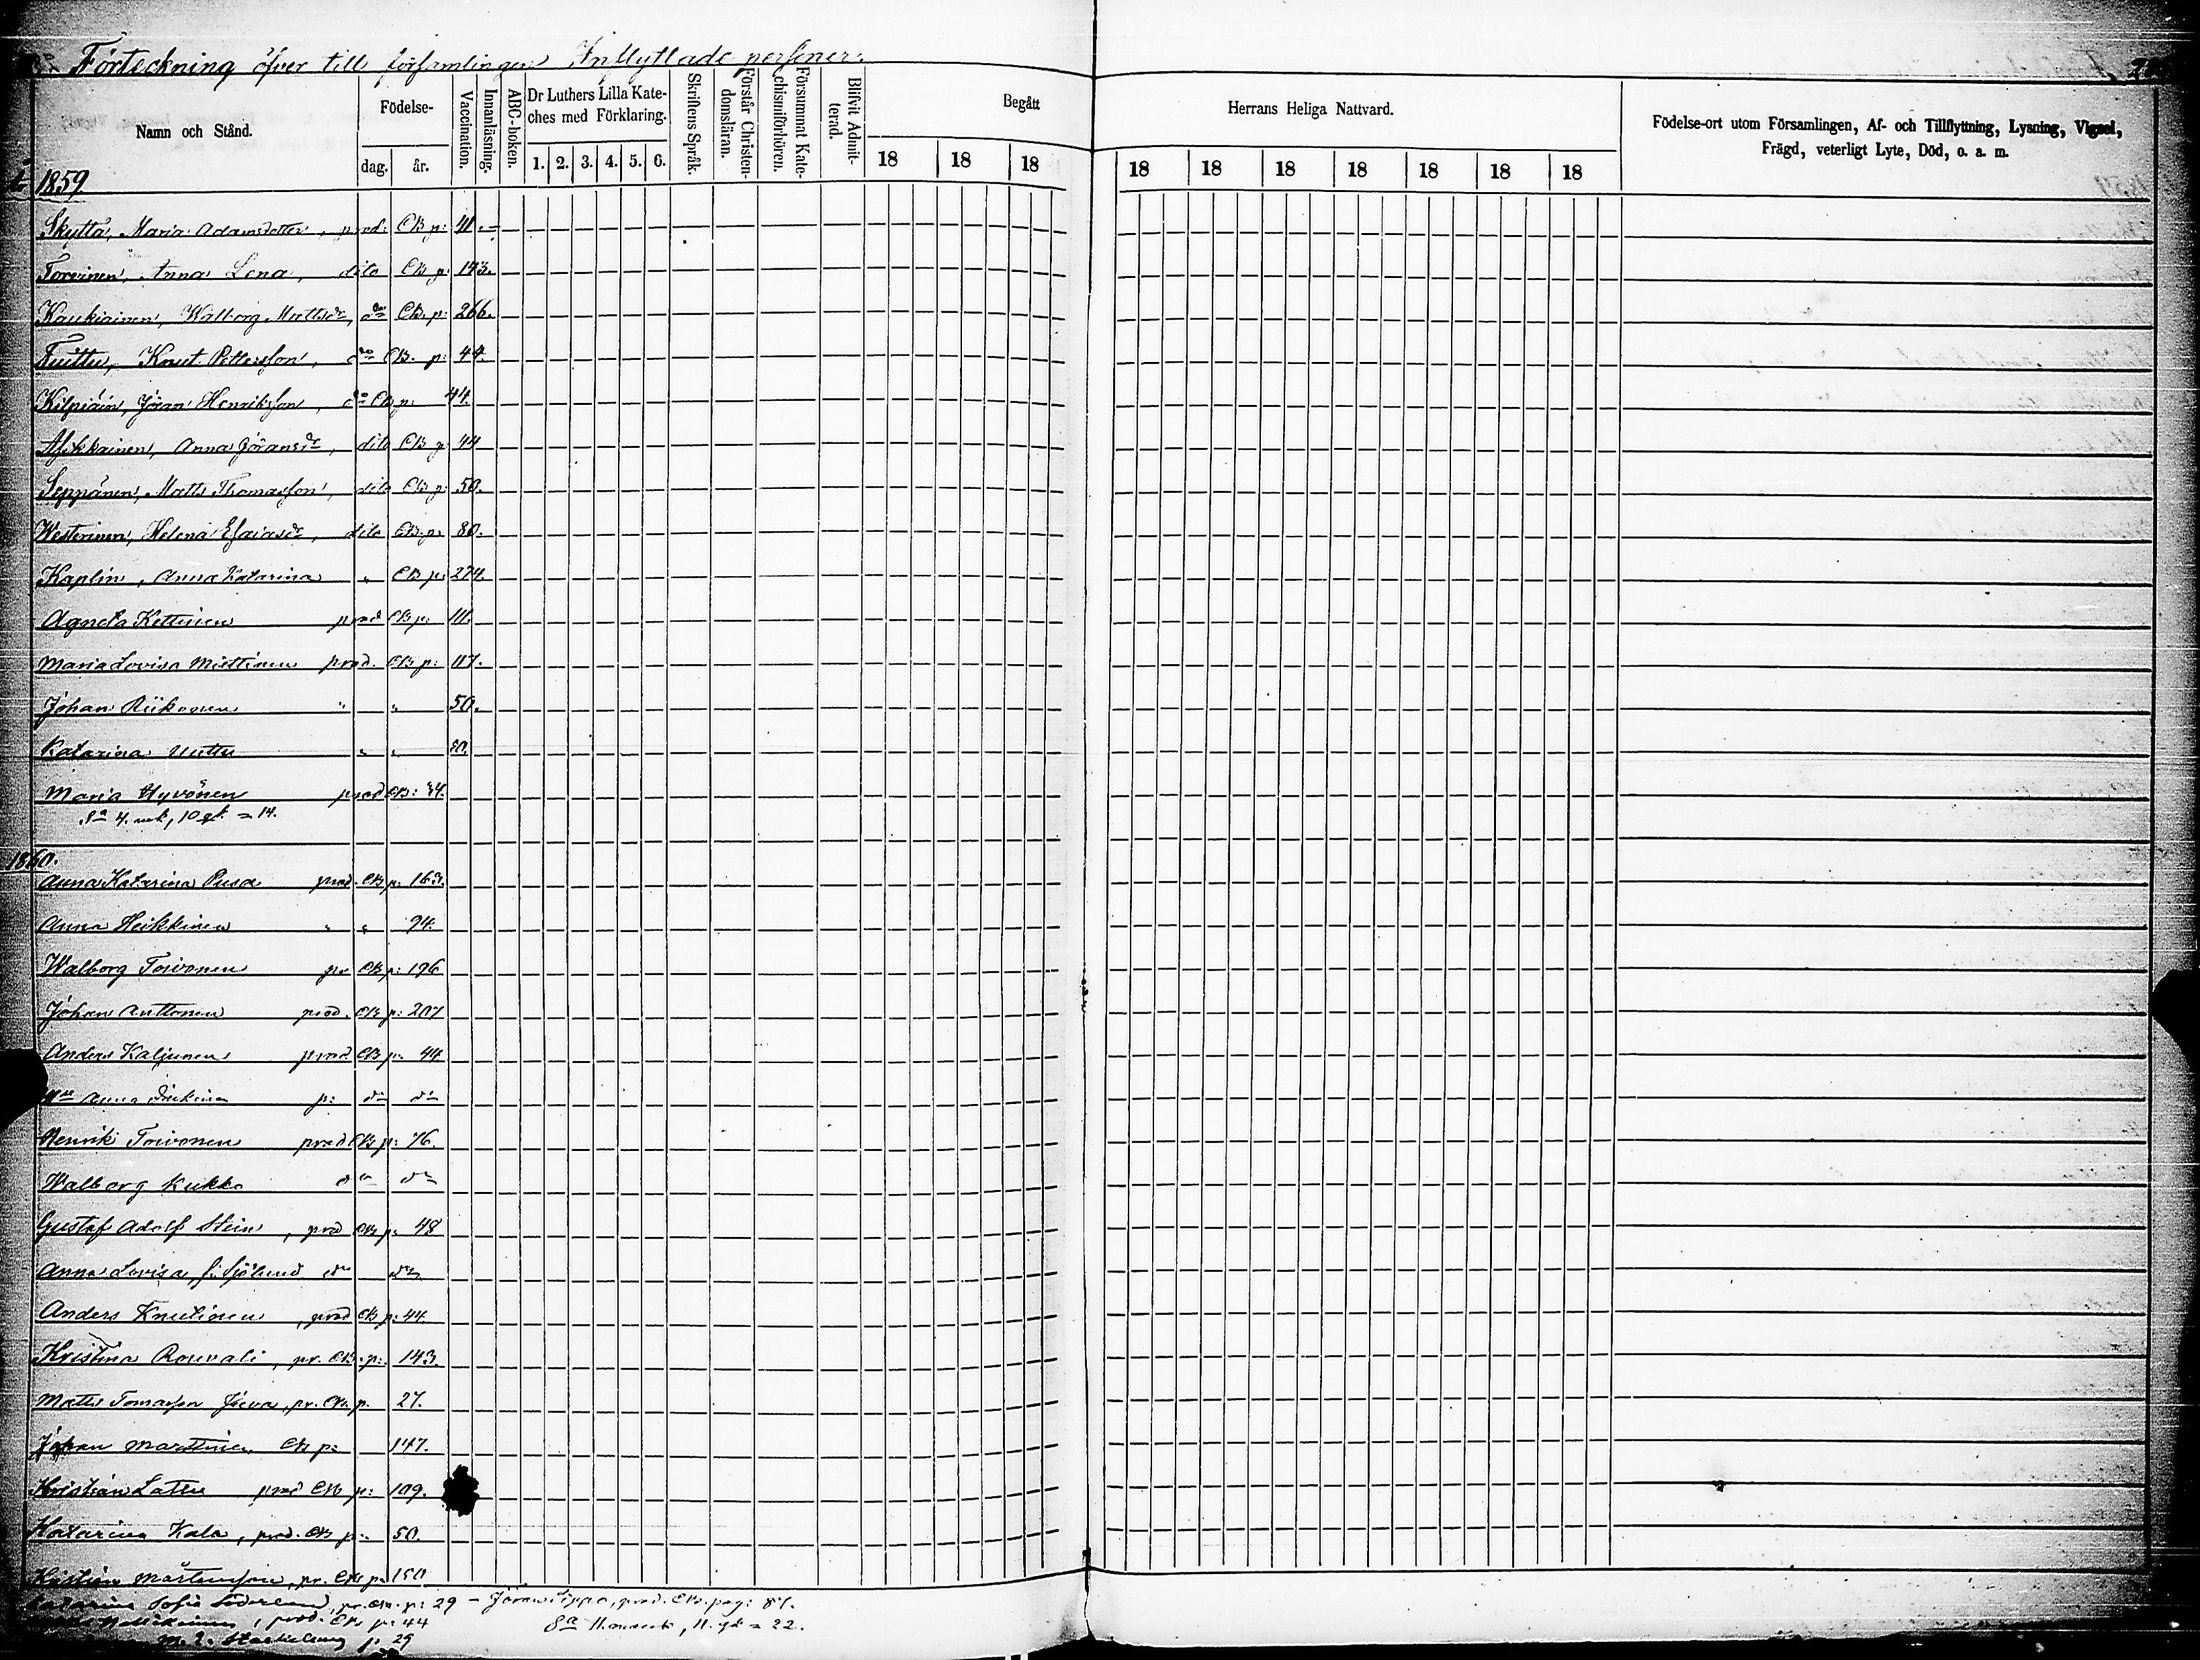 Förteckning öfver till församlingen Inflyttade personer.
Namn och Stånd.
Födelse-
dag. år.
Vaccination.
Innanläsning.
ABC-boken.
Dr Luthers Lilla Kate-
ches med Förklaring.
1. 2. 3. 4. 5. 6.
Skriftens Språk.
Förstår Christen-
domsläran.
Försummat Kate-
chismiförhören.
Blifvit Admit-
terad.
Begått
18 18 18
Herrans Heliga Nattvard.
18 18 18 18 18 18 18
Födelse-ort utom Församlingen, Af- och Tillflyttning, Lysning, Vigsel,
Frägd, veterligt Lyte, Död, o. a. m.
1859
Skyttä, Maria Adamsdotter, prod. CB p: 41.
Toivinen, Anna Lena, dito CB p: 143.
Kaukiainen, Walborg Mattsdr, do CB. p: 266.
Knut Pettersson, do CB. p: 44
Kilpiäin, Jöran Henriksson, do CB p: 44.
Asikkainen, Anna Göransdr, dito CB p: 44
Seppänen, Matts Thomasson, dito CB p: 50.
Westerinen, Helena Esaiasdr, dito CB. p: 80.
Kaplin, Anna Katarina " CB p: 274.
Agneta Kettunen prod CB p: 111.
Maria Lovisa Miettinen prod. CB p: 117.
Johan Riikonen " " 50.
Katarina Uuttu " " 80.
Maria Hyvönen prod CB: 34.
Sa 4. mk, 10 qk = 14.
1860.
Anna Katarina Pusa prod. CB p: 163.
Anna Heikkinen " " 94.
Walborg Toivonen pr CB p: 196
Johan Anttonen prod. CB p: 207
Anders Kaljunen prod CB p: 44
Anna p: do do
Henrik Toivonen prod CB p: 76.
Walborg Kukko do do
Gustaf Adolf Stein, prod CB p: 48
Anna Lovisa f. Sjölund do do
Anders Knutinen, prod CB p: 44.
Kristina Rouvali, pr. CB. p: 143.
Matts Tomasson pr. CB. p. 27.
Johan Marttinen CB p: 147.
Kristian Lattu prod CB p: 109.
Katarina Kala, prod. CB p: 50.
Kristian Mårtensson, pr. CB p: 150
Katarina Sofia Söderlund, pr. CB. p: 29 – prod. CB. pag: 87.
prod. CB p: 44 Sa 11. mk, 11. qk = 22.
p: 29